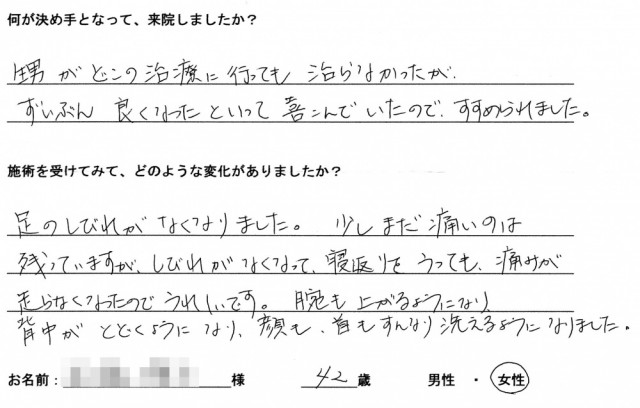 何が決め手となって、来院しましたか？
甥がどこの治療に行っても治らなかったが、
ずいぶん良くなったといって喜こんでいたので、すすめられました。
施術を受けてみて、どのような変化がありましたか？
足のしびれがなくなりました。少しまだ痛いのは
残っていますが、しびれがなくなって、寝返りをうっても、痛みが
走らなくなったのでうれしいです。腕も上がるようになり
背中がとどくようになり、顔も、首もすんなり洗えるようになりました。
お名前： 様 42歳 男性・女性